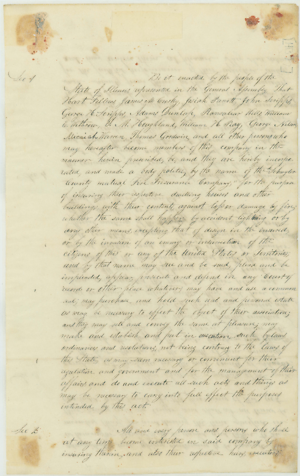 Sec 1 Be it enacted by the people of the
State of Illinois represented in the General Assembly That
Stuart Fellows Josiah Parrott John
George H. Scripps Adams Dunlap
W. H. Thomas Goodwin and all other persons who
may hereafter become members of this company in the
manner herein presented be, and they are hereby incorpo
rated, and made a body politic by the name of the Schuyler
County mutual Fire Insurance Company for the purpose
of insuring their dwelling houses and other
buildings with their contents against loss or damage by fire,
whether the same shall happen by accident lightning or by
any other means excepting that of design in the insured,
or by the invasion of an enemy or insurrection of the
citizens of this or any of the United States or Territories
and by that name may sue and be sued, plead and be
impleaded, appear answer and defend in any Court of
record or other place whatever, may have and use a common
seal, may purchase and hold such real and personal estate
as may be necessary to effect the object of their association,
and they may sell and convey the same at pleasure, may
make and establish and put in execution such by laws
ordinances and resolutions, not being contrary to the laws of
this State, as may seem necessary or convenient for their
regulation and government and for the management of their
affairs and do and execute all such acts and things as
may be necessary to carry into full effect the purposes
intended by this act.
Sec 2. All and every person and persons who shall
at any time become interested in said company by
insuring therein, and also their